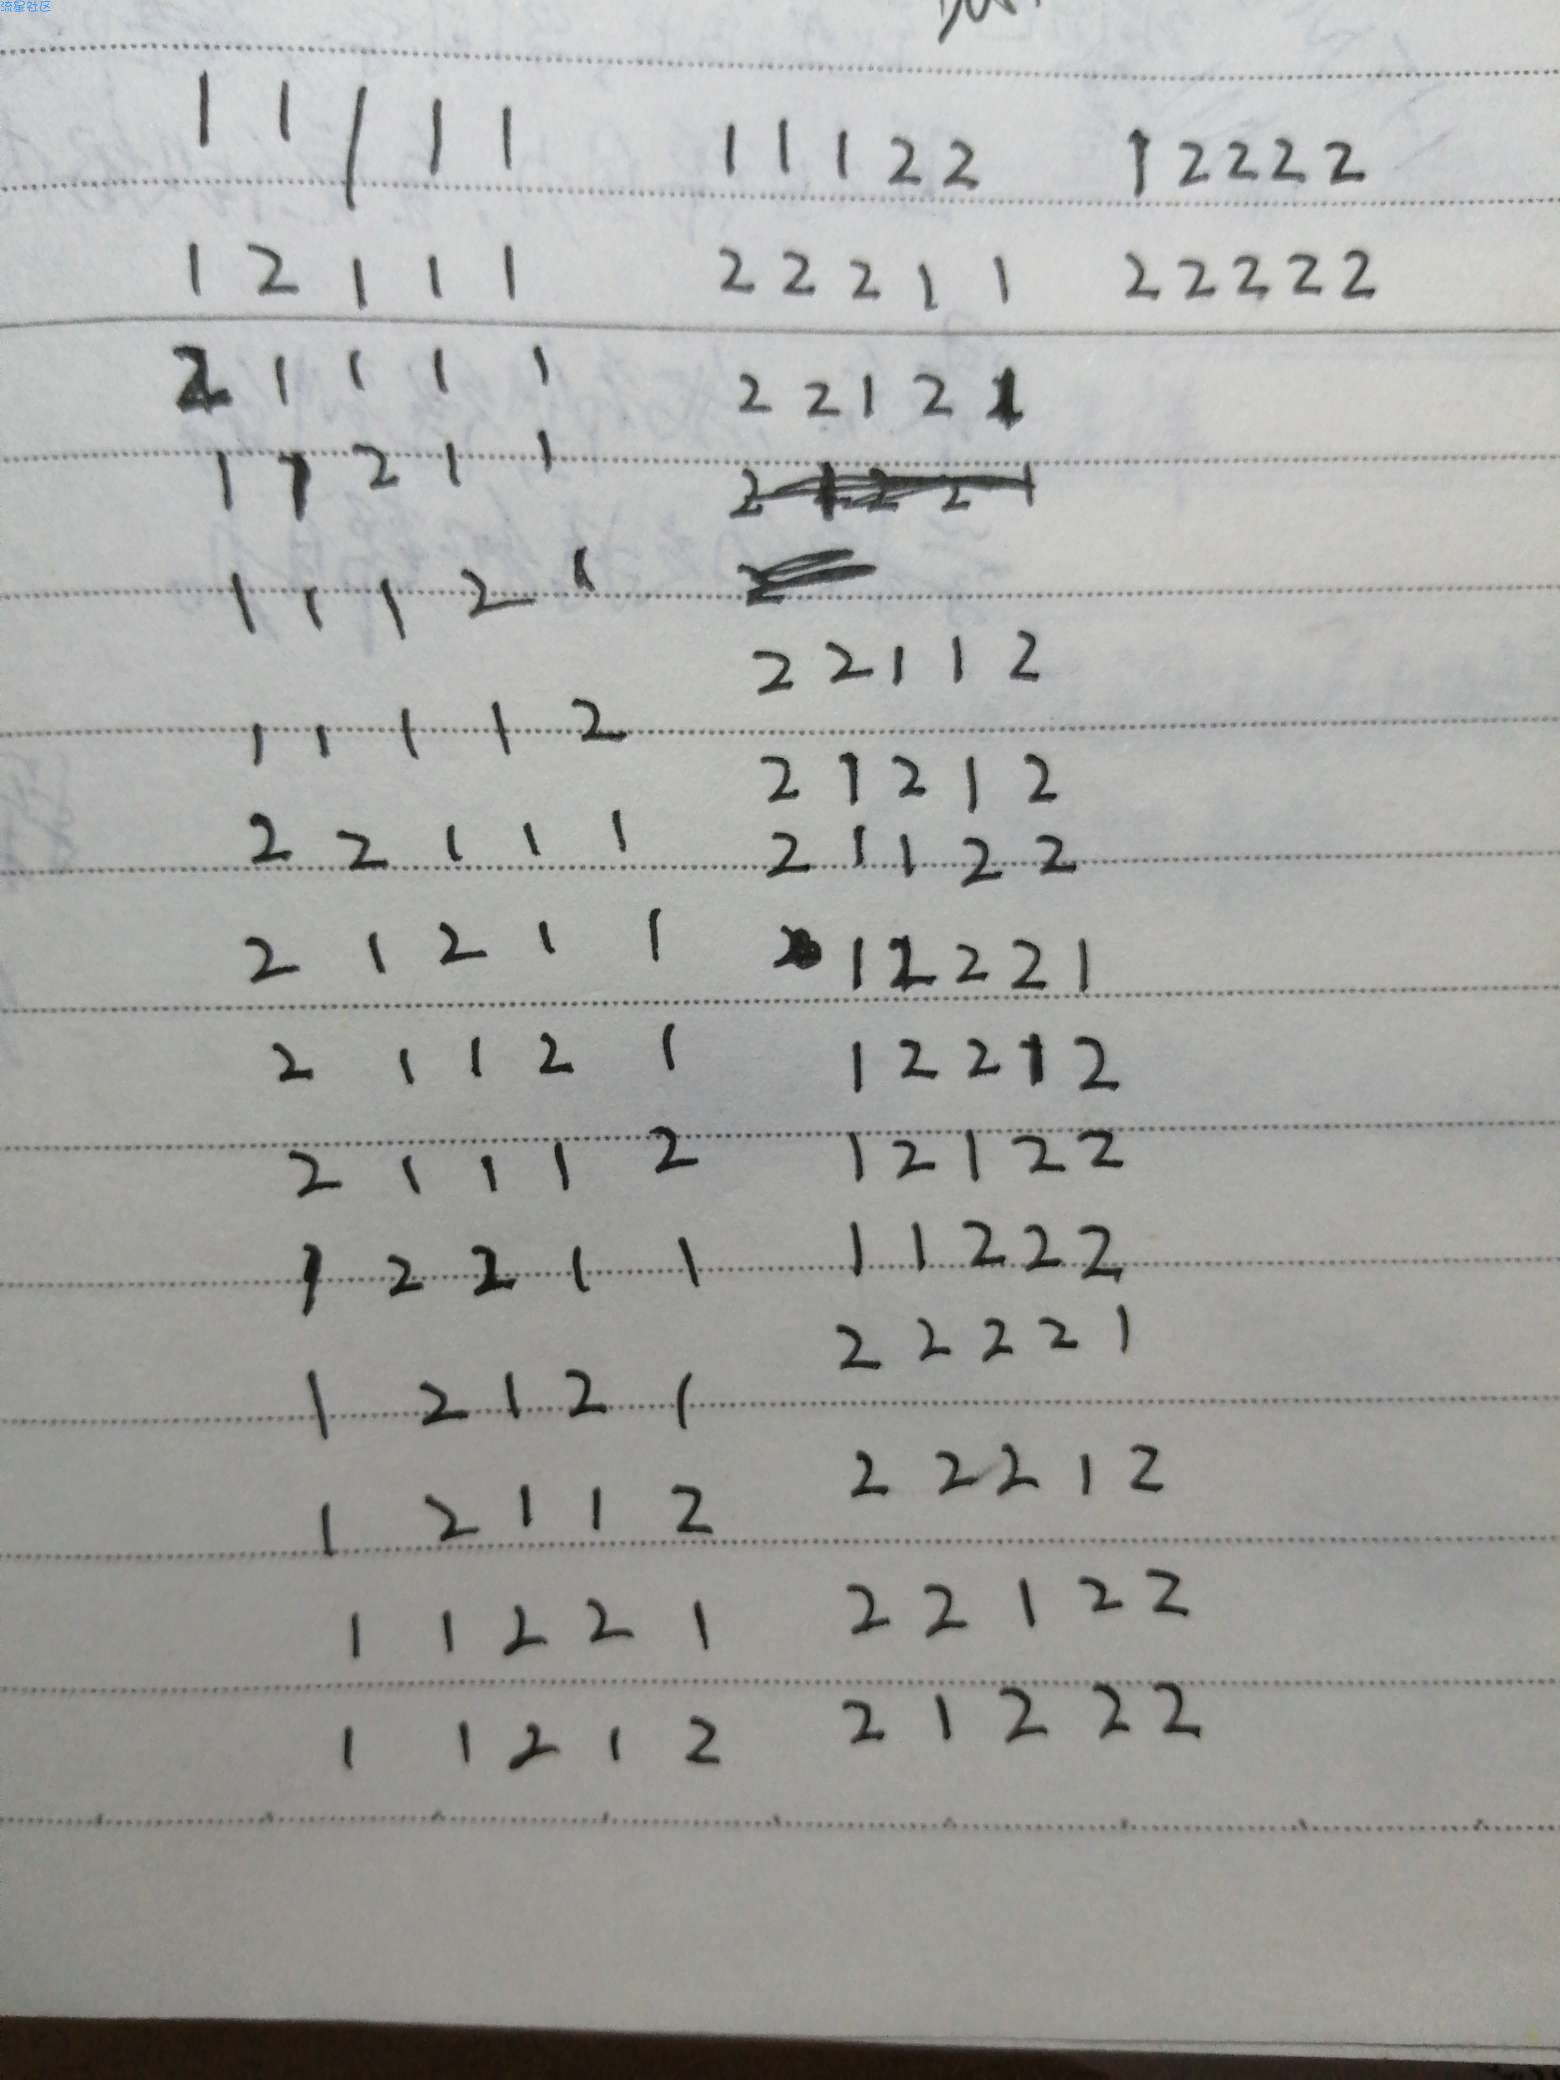 流星社区
1 1 1 1 1
1 2 1 1 1
2 1 1 1 1
1 1 2 1 1
1 1 1 2 1
1 1 1 1 2
2 2 1 1 1
2 1 2 1 1
2 1 1 2 1
2 1 1 1 2
1 2 2 1 1
1 2 1 2 1
1 2 1 1 2
1 1 2 2 1
1 1 2 1 2
1 1 1 2 2
2 2 2 1 1
2 2 1 2 1
2 2 1 1 2
2 1 2 1 2
2 1 1 2 2
1 2 2 2 1
1 2 2 1 2
1 2 1 2 2
1 1 2 2 2
2 2 2 2 1
2 2 2 1 2
2 2 1 2 2
2 1 2 2 2
1 2 2 2 2
2 2 2 2 2